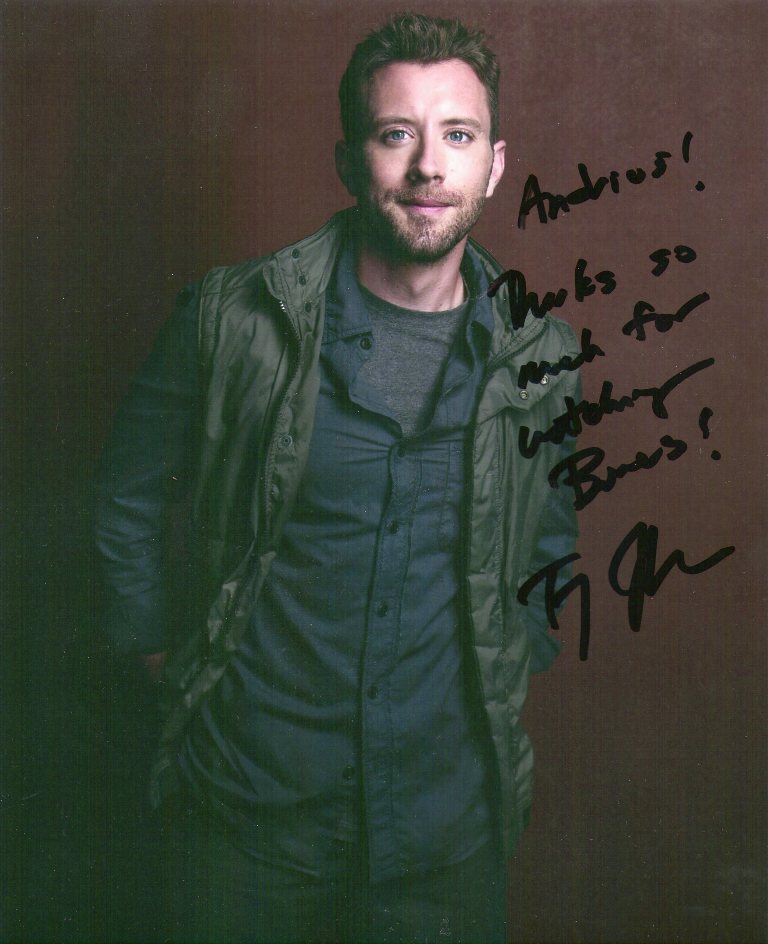 Andrius!
Thanks so
much for
watching
Bones!